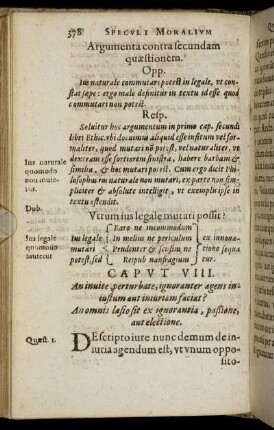 378 SPECULI MORALIUM
Argumenta contra secundam
quæstionem.
Opp.
Ius naturale commutari potest in legale, ut con-
stat sæpe: ergo male definitur in textu id esse quod
commutari non potest.
Resp.
Solvitur hoc argumentum in primo cap. secundi
libri Ethic. ubi docuimus aliquid esse insitum vel for-
maliter, quod mutari nō potest, vel naturaliter, ut
dextram esse fortiorem sinistra, habere barbam &
similia, & hoc mutari potest. Cum ergo dicit Phi-
losophus ius naturale non mutari, ex parte non sim-
pliciter & absolute intelligit, ut exemplis ipse in
textu ostendit.
Ius naturale
quomodo
non mute-
tur.
Dub.
Utrum ius legale mutari possit?
Ius legale
quomodo
mutetur
Ius legale
mutari
potest, sed
Raro ne incommodum
In melius ne periculum
Prudenter & sensim ne
Reipub naufragium
ex innova-
tione sequa
tur.
CAPUT VIII.
An invite, perturbate, ignoranter agens in-
iustum aut iniuriam faciat?
An omnis læsio sit ex ignorantia, passione,
aut electione.
Quæst. 1.
DE scripto iure nunc demum de in-
iuria agendum est, ut unum oppo-
sito-